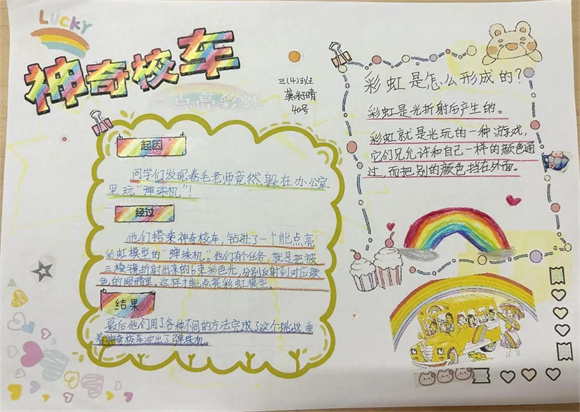 LUCKY
神奇校车
三(4)班
40号
起因
同学们发现卷毛老师竟然躲在办公室
里玩"弹珠机"!
经过
他们搭乘神奇校车,钻进了一个能点亮
彩虹模型的"弹珠机"。他们有个任务,就是把被
三棱镜折射出来的6束彩色光,分别反射到对应颜
色的眼睛里,这样才能点亮彩虹模型。
结果
最后他们用了各种不同的方法完成了这个挑战,乘
着神奇校车冲出了弹珠机。
彩虹是怎么形成的?
彩虹是光折射后产生的。
彩虹就是光玩的一种游戏,
它们只允许和自己一样的颜色通
过,而把别的颜色挡在外面。